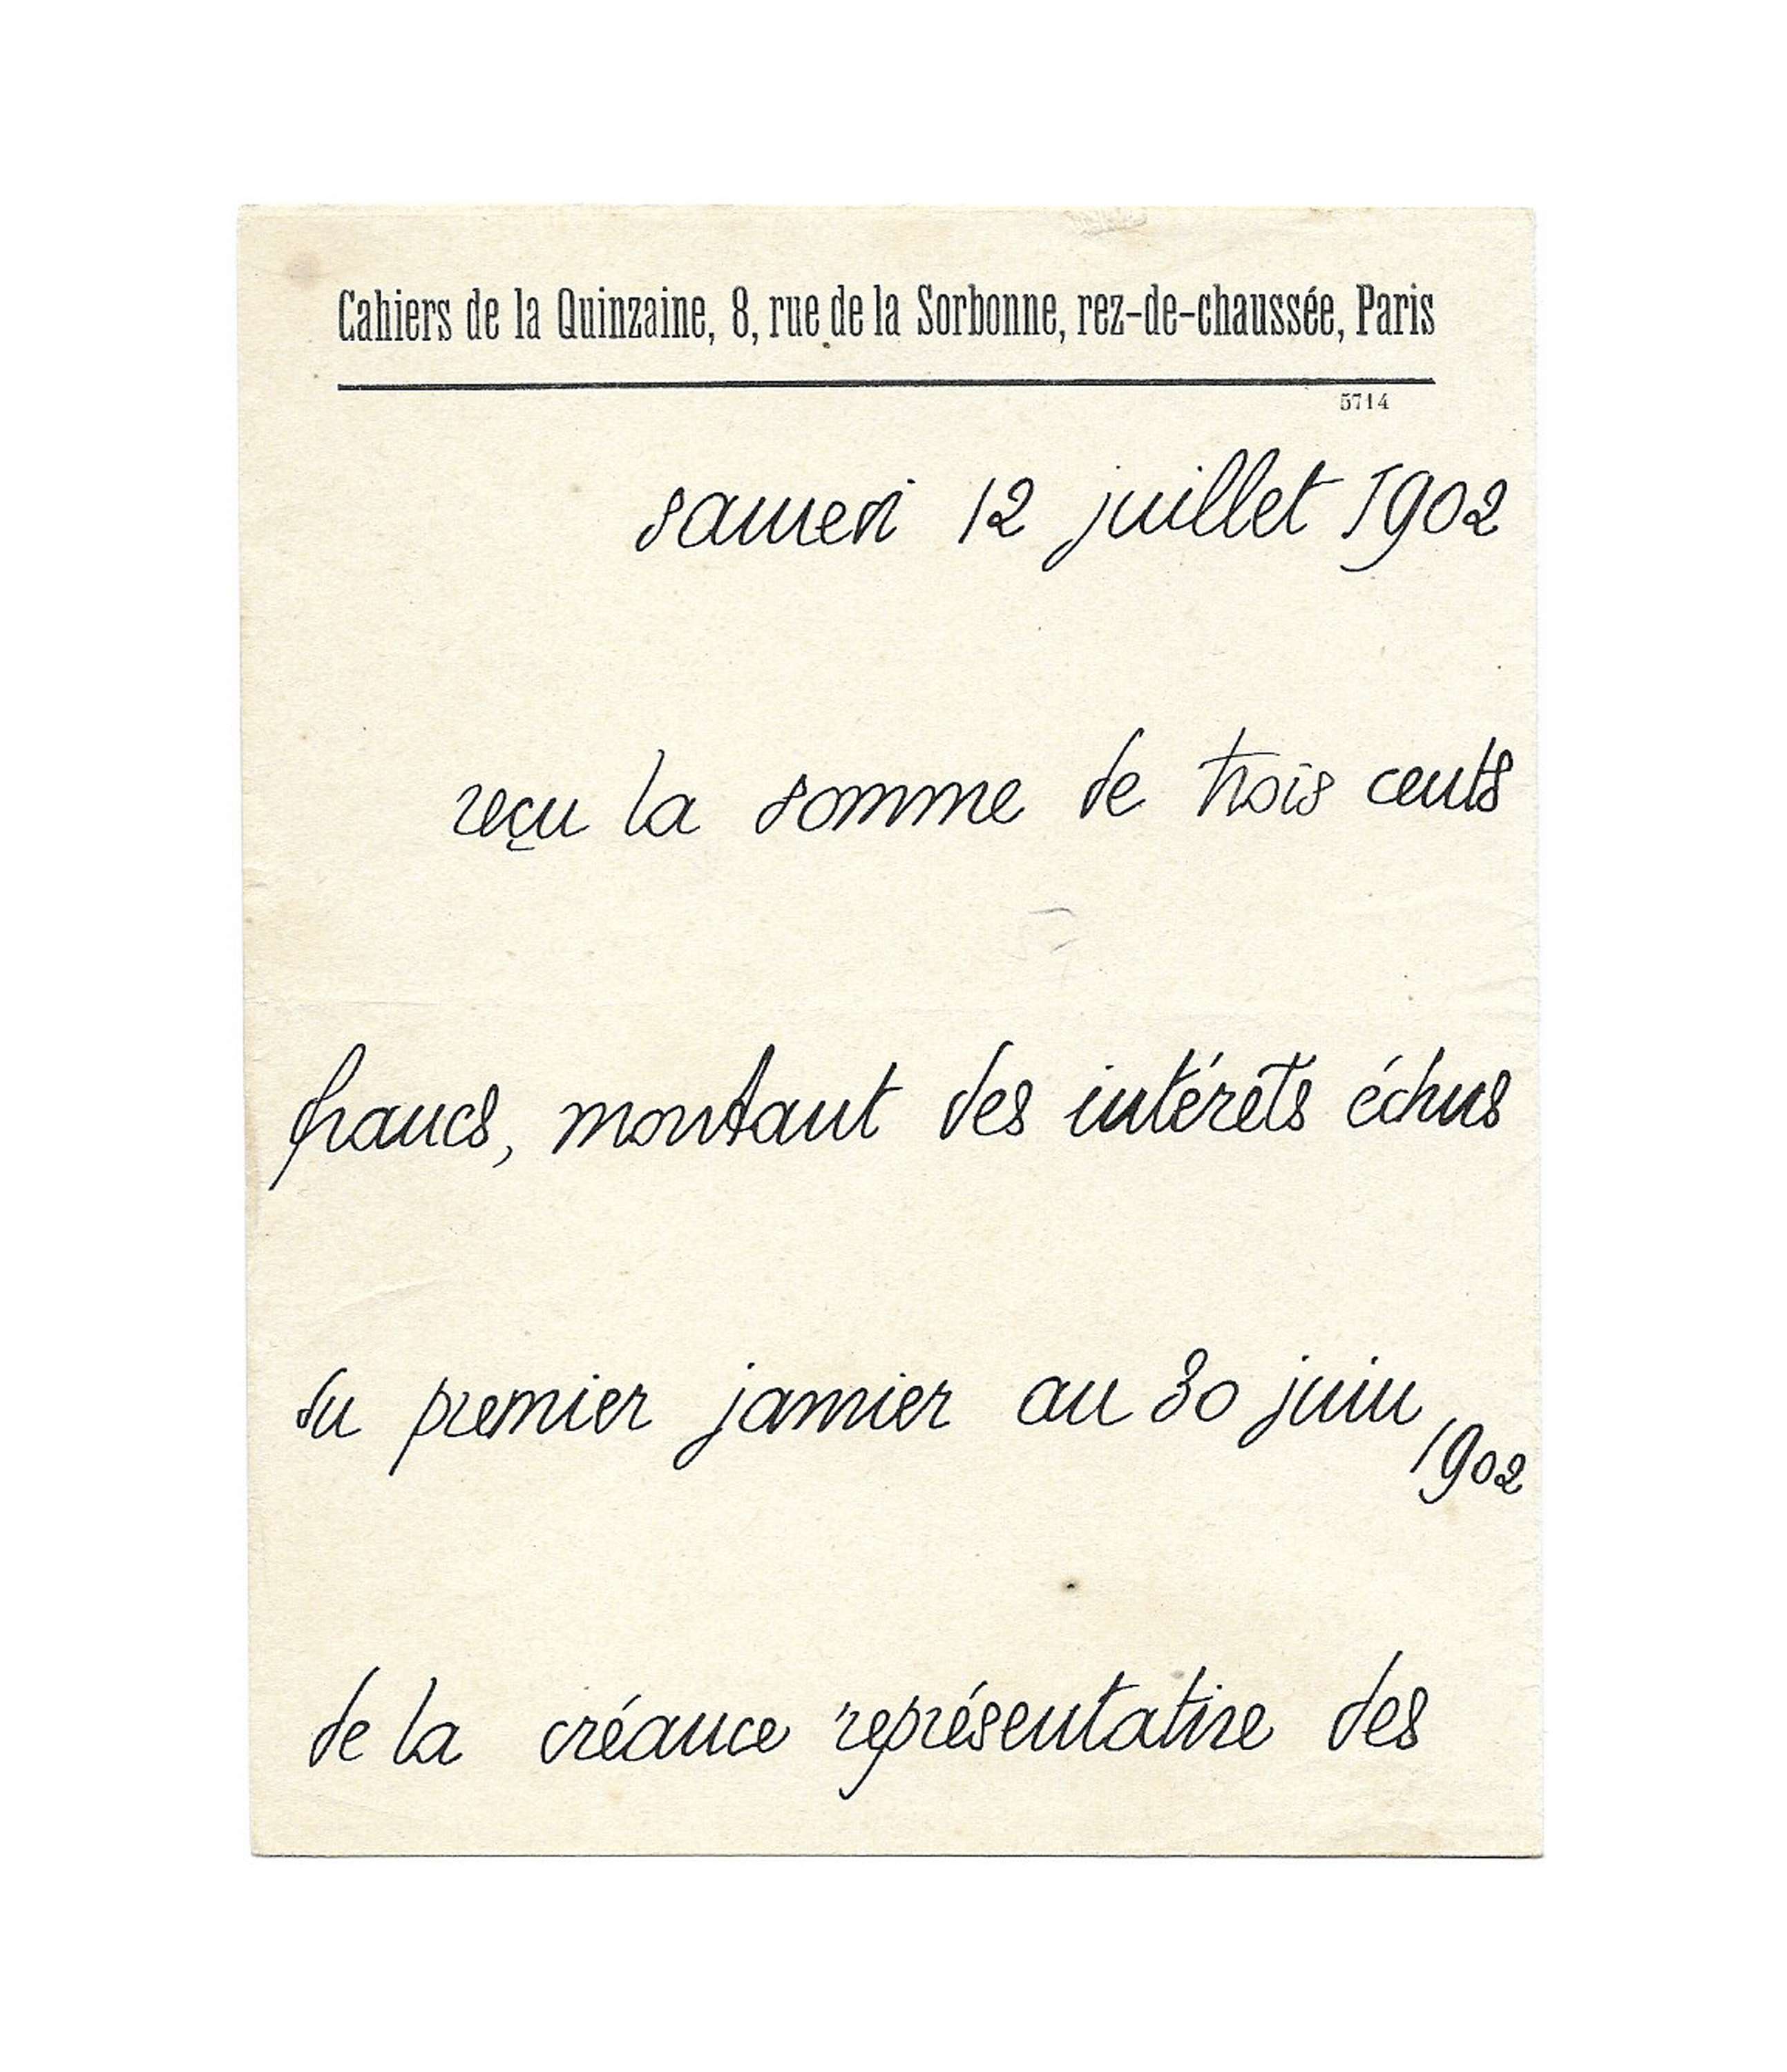 Cahiers de la Quinzaine, 8, rue de la Sorbonne, rez-de-chaussée, Paris
5714
samedi 12 juillet 1902
reçu la somme de trois cents
francs, montant des intérêts échus
du premier janvier au 30 juin
1902
de la créance représentative des